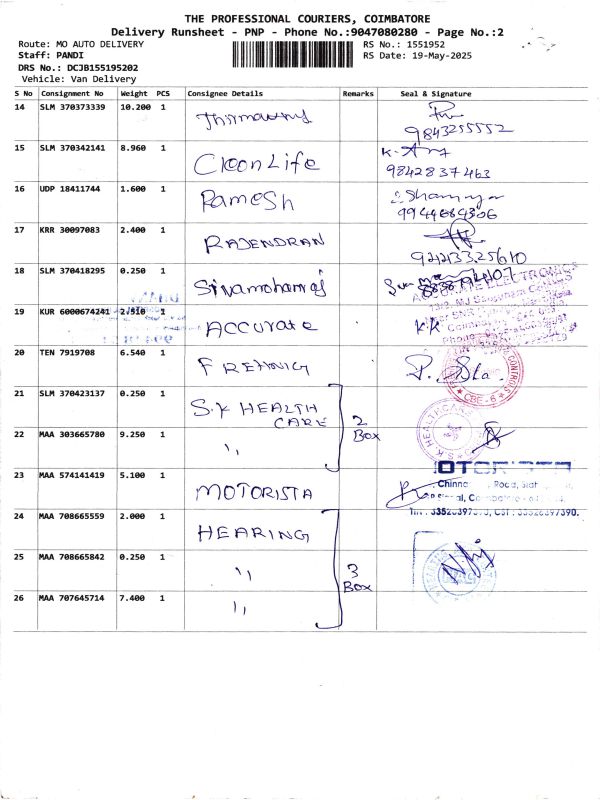 THE PROFESSIONAL COURIERS, COIMBATORE
Delivery Runsheet - PNP - Phone No.:9047080280 - Page No.:2
Route: MO AUTO DELIVERY
Staff: PANDI
DRS No.: DCJB155195202
Vehicle: Van Delivery
RS No.: 1551952
RS Date: 19-May-2025
S No Consignment No Weight PCS Consignee Details Remarks Seal & Signature
14 SLM 370373339 10.200 1
9843255552
15 SLM 370342141 8.960 1 Cleon Life
9842837463
16 UDP 18411744 1.600 1 Ramesh
17 KRR 30097083 2.400 1 RAJENDRAN
18 SLM 370418295 0.250 1 Sivamohanraj
19 KUR 6000674241 2.510 1 Accurate K.K
20 TEN 7919708 6.540 1
CBE - 6
21 SLM 370423137 0.250 1 S.K HEALTH CARE
2 Box
S.K. HEALTHCARE
22 MAA 303665780 9.250 1 ,,
23 MAA 574141419 5.100 1 MOTORISTA
24 MAA 708665559 2.000 1 HEARING
25 MAA 708665842 0.250 1 ,,
3 Box
26 MAA 707645714 7.400 1 ,,